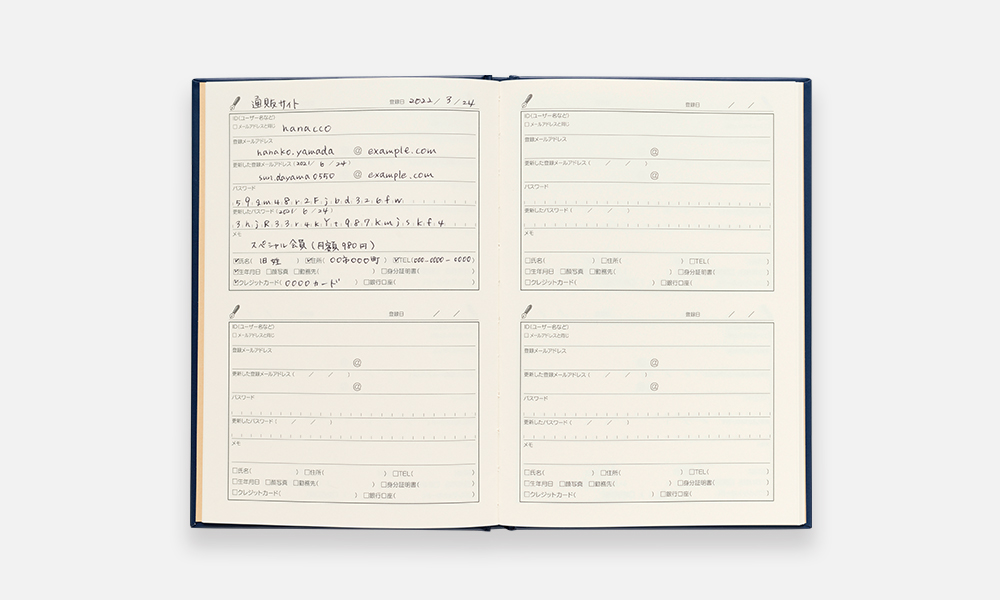 通販サイト 登録日 2022/3/24
ID(ユーザー名など)
□メールアドレスと同じ hanacco
登録メールアドレス
hanako.yamada @ example.com
更新した登録メールアドレス(2021/6/24)
sun.dayama0550 @ example.com
パスワード
5.9.3.m.4.8.r.2.F.j.b.d.3.2.6.f.w.
更新したパスワード(2021/6/24)
3.h.j.R.3.3.r.4.k.Y.t.9.8.7.k.m.j.s.k.f.4
メモ
スペシャル会員(月額980円)
☑氏名(旧姓) ☑住所(00市000町) ☑TEL(000-0000-0000)
☑生年月日 □顔写真 □勤務先( ) □身分証明書( )
☑クレジットカード(0000カード) □銀行口座( )
登録日 / /
ID(ユーザー名など)
□メールアドレスと同じ
登録メールアドレス
@
更新した登録メールアドレス( / / )
@
パスワード
更新したパスワード( / / )
メモ
□氏名( ) □住所( ) □TEL( )
□生年月日 □顔写真 □勤務先( ) □身分証明書( )
□クレジットカード( ) □銀行口座( )
登録日 / /
ID(ユーザー名など)
□メールアドレスと同じ
登録メールアドレス
@
更新した登録メールアドレス( / / )
@
パスワード
更新したパスワード( / / )
メモ
□氏名( ) □住所( ) □TEL( )
□生年月日 □顔写真 □勤務先( ) □身分証明書( )
□クレジットカード( ) □銀行口座( )
登録日 / /
ID(ユーザー名など)
□メールアドレスと同じ
登録メールアドレス
@
更新した登録メールアドレス( / / )
@
パスワード
更新したパスワード( / / )
メモ
□氏名( ) □住所( ) □TEL( )
□生年月日 □顔写真 □勤務先( ) □身分証明書( )
□クレジットカード( ) □銀行口座( )